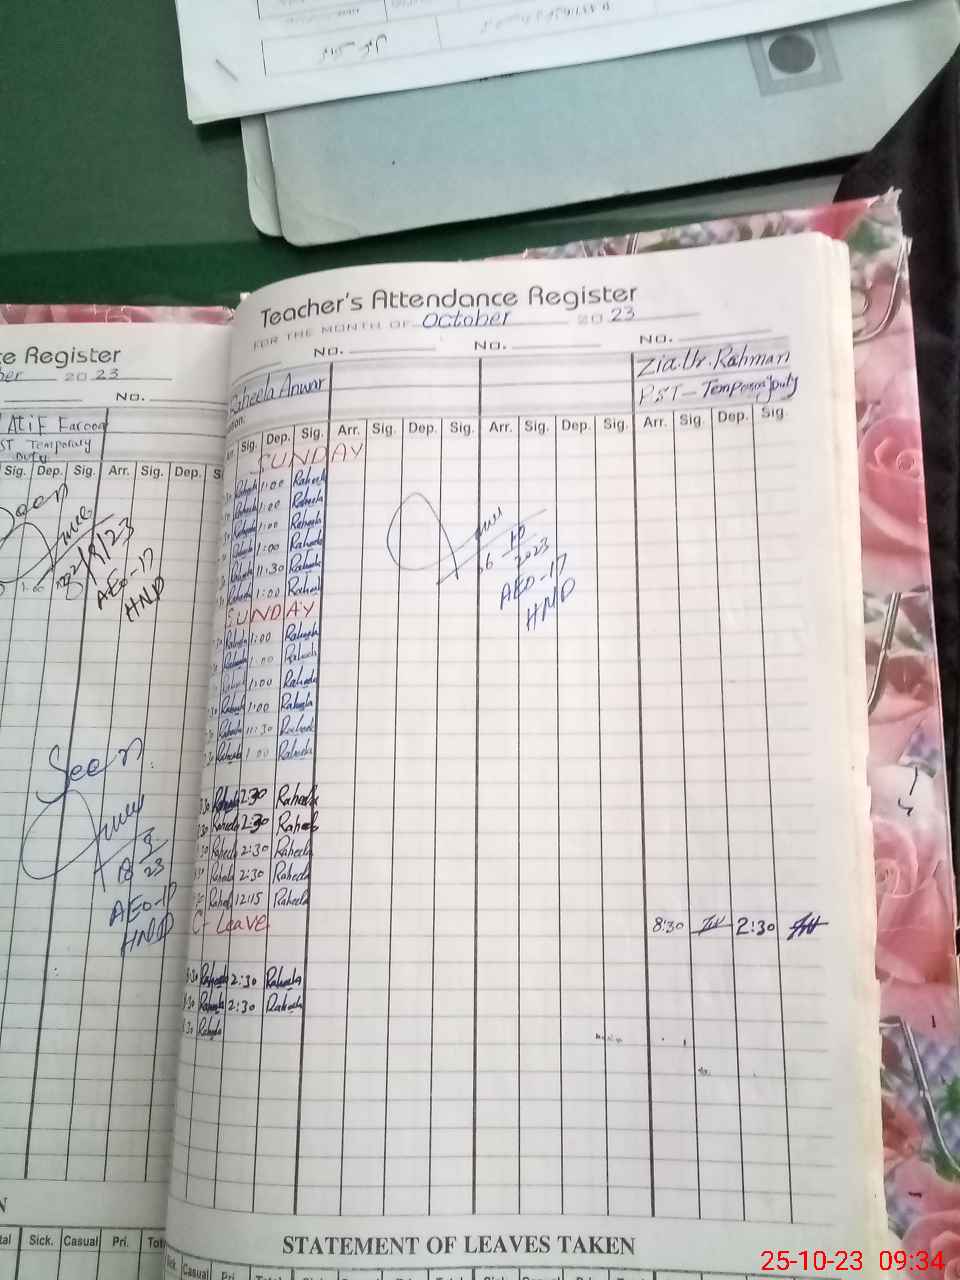 Teacher's Attendance Register
FOR THE MONTH OF October 2023
No. No. No.
Raheela Anwar
Zia.Ur.Rahman
PST-Temporary Duty
Sig. Dep. Sig. Arr. Sig. Dep. Sig. Arr. Sig. Dep. Sig. Arr. Sig. Dep. Sig.
SUNDAY
Raheela 1:00 Raheela
Raheela 1:00 Raheela
Raheela 1:00 Raheela
Raheela 1:00 Raheela
Raheela 11:30 Raheela
Raheela 1:00 Raheela
SUNDAY
Raheela 1:00 Raheela
Raheela 1:00 Raheela
Raheela 1:00 Raheela
Raheela 1:00 Raheela
Raheela 11:30 Raheela
Raheela 1:00 Raheela
Raheela 2:30 Raheela
Raheela 2:30 Raheela
Raheela 2:30 Raheela
Raheela 2:30 Raheela
Raheela 12:15 Raheela
C-Leave
8:30 2:30
8:30 Raheela 2:30 Raheela
8:30 Raheela 2:30 Raheela
8:30 Raheela
10
2023
AEO-17
HND
STATEMENT OF LEAVES TAKEN
Sick. Casual Pri. Total
ce Register
ber 2023
No.
Atif Farooq
PST Temporary
Duty
Sig. Dep. Sig. Arr. Sig. Dep.
Seen
AEO-17
HND
Seen
18 9 23
AEO-17
HND
Sick. Casual Pri.
25-10-23 09:34